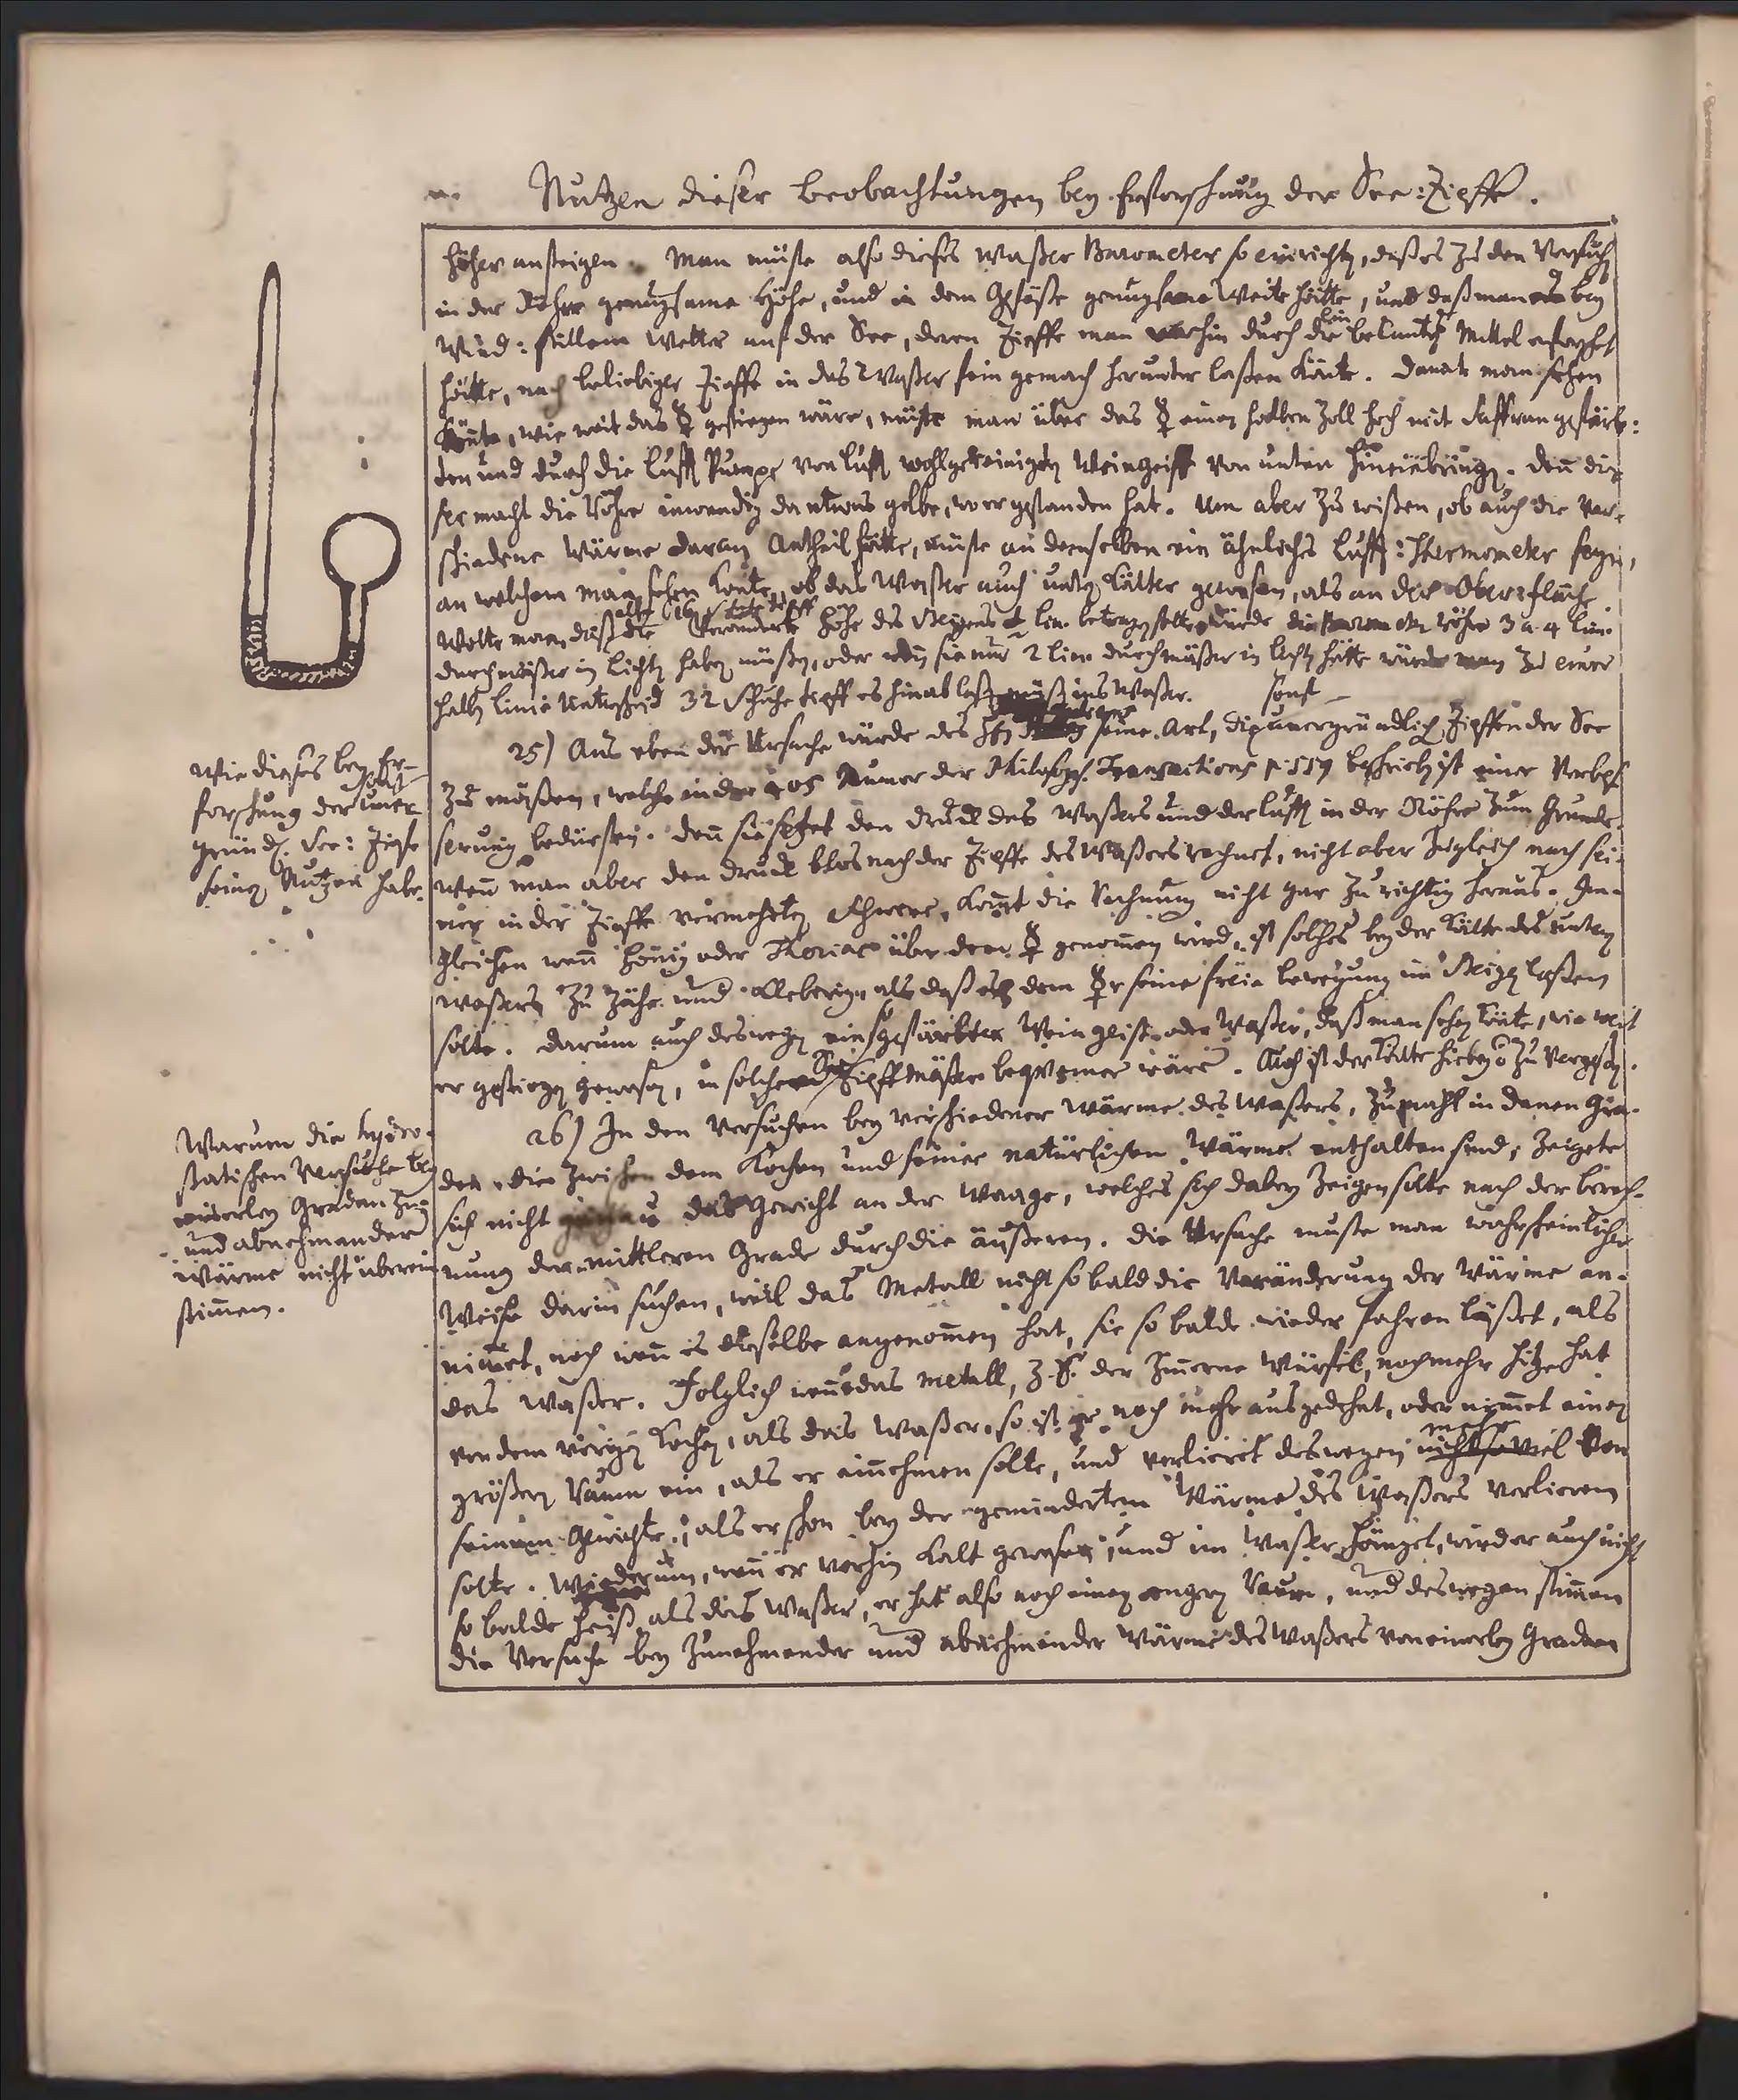 Nutzen dieser beobachtungen bey Erforschung der See: Tieffe.
höher ansteigen. Man müste also dieses Waßer Barometer so einrichten, daß es zu den Versuch
in der Röhre genugsame Höhe, und in dem Gefäße genugsame Weite hätte, und daß man es bey
Wind: stillem Wetter auf der See, deren Tieffe man vorhin durch die bekanten Mittel erforschet
hätte, nach beliebiger Tieffe in das Waßer fein gemach herunter laßen könte. Damit man sehen
könte, wie weit das ☿ gestiegen wäre, müste man über das ☿ einen halben Zoll hoch mit Saffran gefärb:
ten und durch die Lufft Pumpe von Lufft wohlgereinigten Weingeist von unten hineinbringen. Denn die-
ser macht die Röhre inwendig da etwas gelbe, wo er gestanden hat. Um aber zu wißen, ob auch die ver-
schiedene Wärme daran Antheil hätte, müste an demselben ein ähnliches Lufft: Thermometer seyn,
an welchem man sehen könte, ob das Waßer auch unten kälter gewesen, als an der Oberfläche
Wolte man, daß die veränderte Höhe des Steigens lin. betragen solte, würde die Barometer Röhre 3 a 4 lin.
durchmäßer in lichten haben müßen, oder wenn sie nur 2 lin. durchmäßer in lichten hätte würde man zu einer
halben Linie Unterscheid 32 Schuhe tieff es hinab laßen müßen ins Waßer.
sonst
25) Aus eben der Ursache würde des Hn seine Art, die unergründlichen Tieffen der See
zu mäßen, welche in der 405 Numer der Philosoph. Transactions p. 559 beschrieben ist einer Verbeß-
serung bedürfen. Denn sie setzet den Druck des Waßers und der Lufft in der Röhre zum Grunde.
Wenn man aber den Druck blos nach der Tieffe des Waßers rechnet, nicht aber zugleich nach sei-
ner in der Tieffe vermehrten Schwere, komt die Rechnung nicht gar zu richtig heraus. Im-
gleichen wenn Honig oder Theriac über dem ☿ genommen wird, ist solches bey der Kälte des untern
Waßers zu zähe und kleberig, als daß es dem ☿r seine freie bewegung im Steigen laßen
solte. Darum auch deswegen ein gefärbter Weingeist oder Waßer, daß man sehen könte, wie weit
er gestiegen gewesen, in solchem Tieffmäßer beqvemer wäre. Auch ist der Kälte hiebey zu vergeßen.
26) In den Versuchen bey verschiedener Wärme des Waßers, zumahl in denen Gra-
den, die zwischen dem Kochen und seiner natürlichen Wärme enthalten sind, zeigete
sich nicht genau das Gewicht an der Waage, welches sich dabey zeigen solte nach der berech-
nung der mittleren Grade durch die äußeren. Die Ursache muste man wahrscheinlicher
Weise darin suchen, weil das Metall nicht so bald die Veränderung der Wärme an-
nimmet, noch wenn es dieselbe angenommen hat, sie so balde wieder fahren läßet, als
das Waßer. Folglich wenn das Metall, z. E. der Zinnerne Würfel, noch mehr Hitze hat
von dem vorigen Kochen, als das Waßer, so ist er noch mehr ausgedehnt, oder nimmet einen
größern Raum ein, als er einnehmen solte, und verlieret deswegen mehr von
seinem Gewichte, als er schon bey der geminderten Wärme des Waßers verlieren
solte. Wiederum, wenn er vorhin kalt gewesen, und im Waßer hänget, wird er auch nicht
so balde heiß als das Waßer, er hat also noch einen engern Raum, und deswegen stimmen
die Versuche bey zunehmender und abnehmender Wärme des Waßers von einerley Graden
Wie dieses bey Er-
forschung der sonst uner
gründl. See: Tiefe
seinen Nutzen habe.
Warum die hydro-
statischen Versuche bey
einerley Graden zu=
und abnehmender
Wärme nicht überein
stimmen.